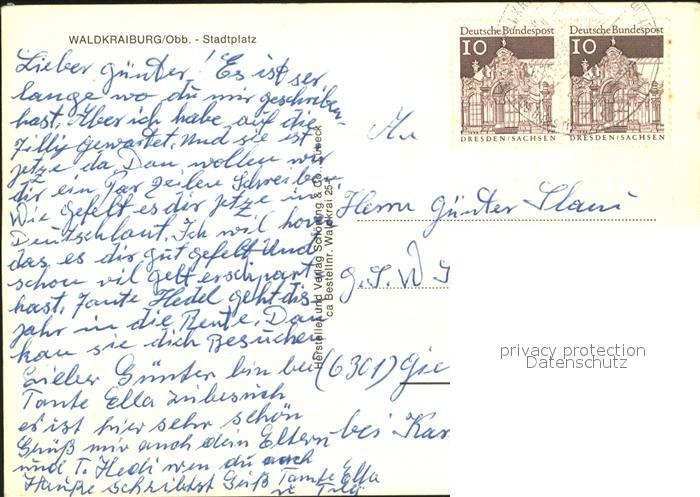 WALDKRAIBURG/Obb. - Stadtplatz
Lieber Günter! Es ist ser
lange wo du mir geschriben
hast. Aber ich habe auf die
Tilly gewartet. Und sie ist
jetze da. Dan wollen wir
dir ein Par Zeilen Schreiben
Wie gefelt es dir jetze in
Deutschlant. Ich wil hoffen
das es dir gut gefelt Und
schon vil gelt erschpart
hast. Tante Hedel geht dis
jahr in die Rente. Dan
kan sie dich Besuchen
Lieber Günter bin bei
Tante Ella zubesuch
es ist hier sehr schön
Grüß mir auch dein Eltern
und T. Hedi wen du auch
Hauße schreibst Grüß Tante Ella
u. Tilly
Hersteller und Verlag Schöning & Co., Lübeck
ca Bestellnr. Waldkrai 25
Deutsche Bundespost
10
DRESDEN/SACHSEN
Deutsche Bundespost
10
DRESDEN/SACHSEN
An
Herrn Günter
(6301) Gie
bei Kar
privacy protection
Datenschutz